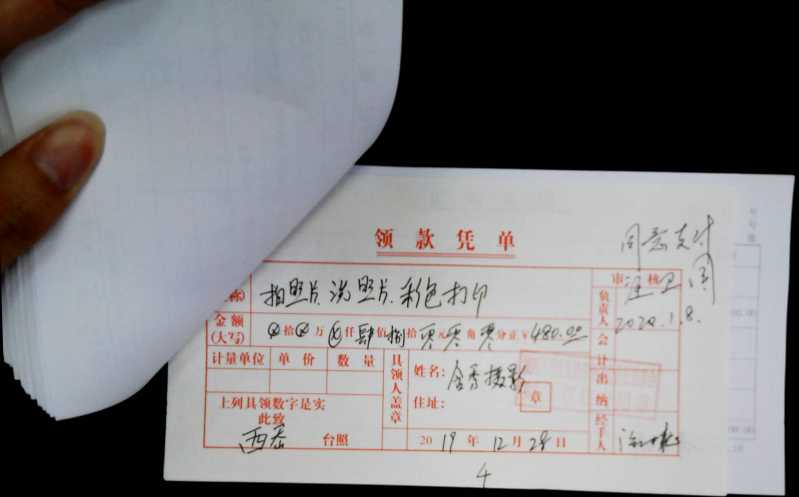 领款凭单
同意支付
审核
2020.1.8.
称) 拍照片、洗照片、彩色打印
负责人
金额(大写) ⊗拾⊗万⊗仟肆佰捌拾零元零角零分正¥480.00
会计
计量单位 单价 数量
具领人盖章
姓名: 摄影
住址: 章
出纳
上列具领数字是实
此致
台照
2019年12月28日
经手人
4